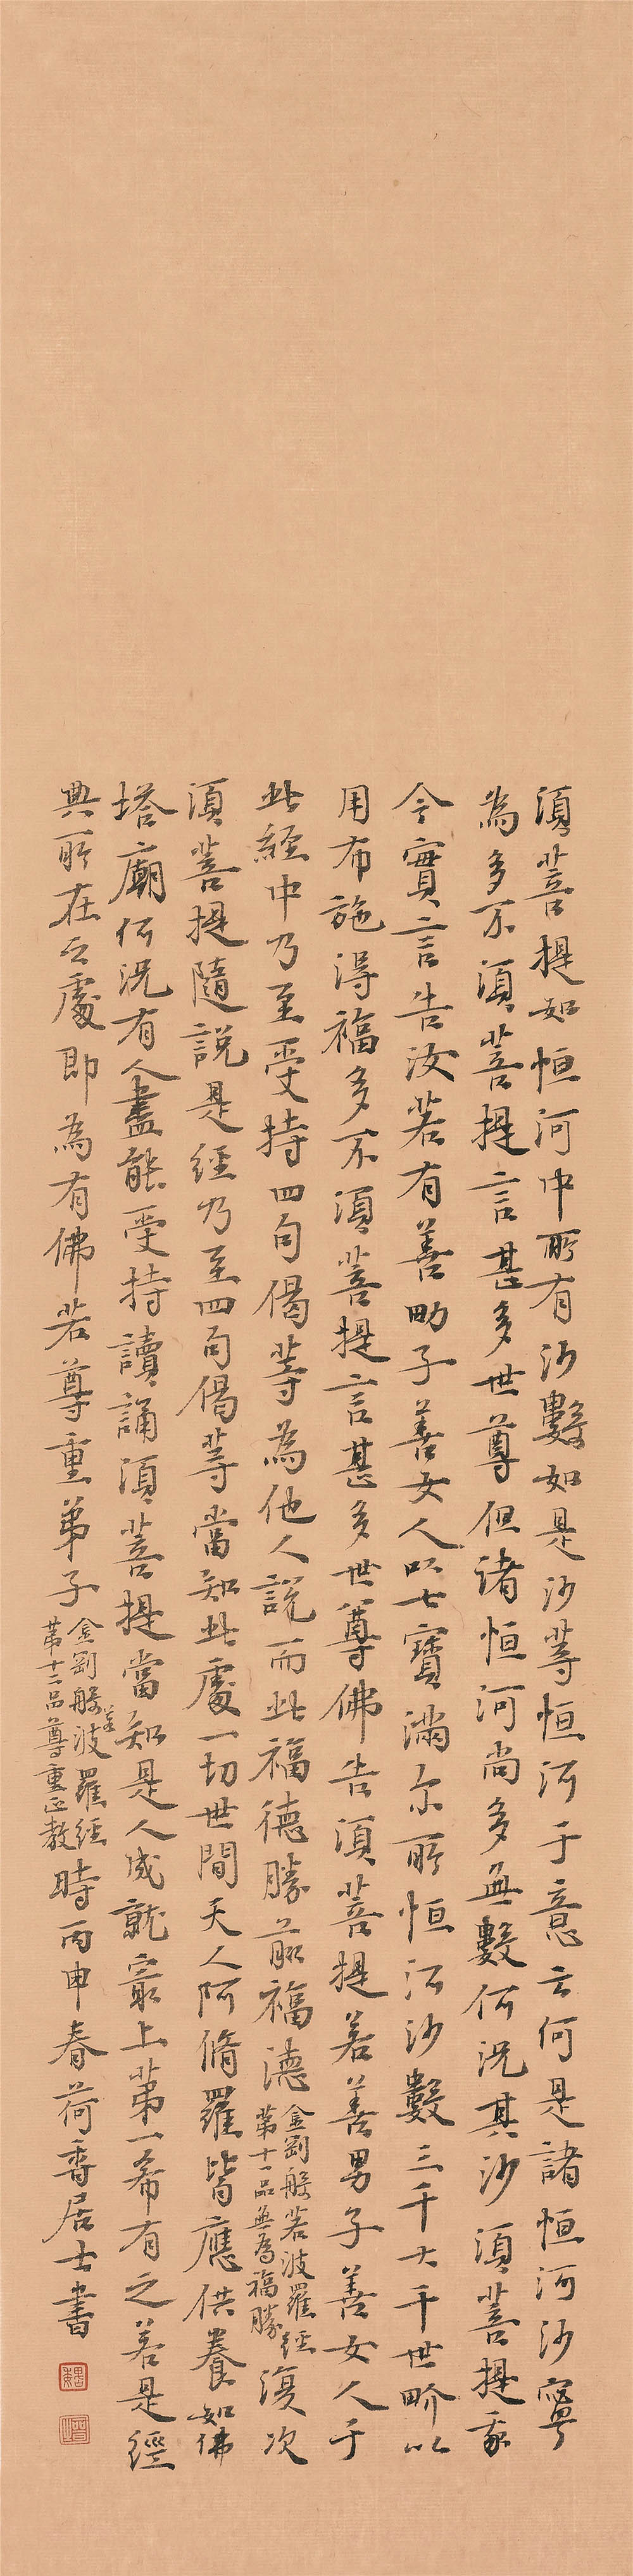 須菩提如恒河中所有沙數如是沙等恒河于意云何是諸恒河沙寧
為多不須菩提言甚多世尊但诸恒河尚多無數何況其沙須菩提我
今實言告汝若有善男子善女人以七寶滿尔所恒河沙數三千大千世界以
用布施得福多不須菩提言甚多世尊佛告須菩提若善男子善女人于
此經中乃至受持四句偈等為他人說而此福德勝前福德
金剛般若波羅經
第十一品無為福勝
復次
須菩提隨說是經乃至四句偈等當知此處一切世間天人阿脩羅皆應供養如佛
塔廟何況有人盡能受持讀誦須菩提當知是人成就最上第一希有之若是經
典所在之處即為有佛若尊重弟子
金剛般若波羅經
第十二品尊重正教
時丙申春荷香居士書
魏